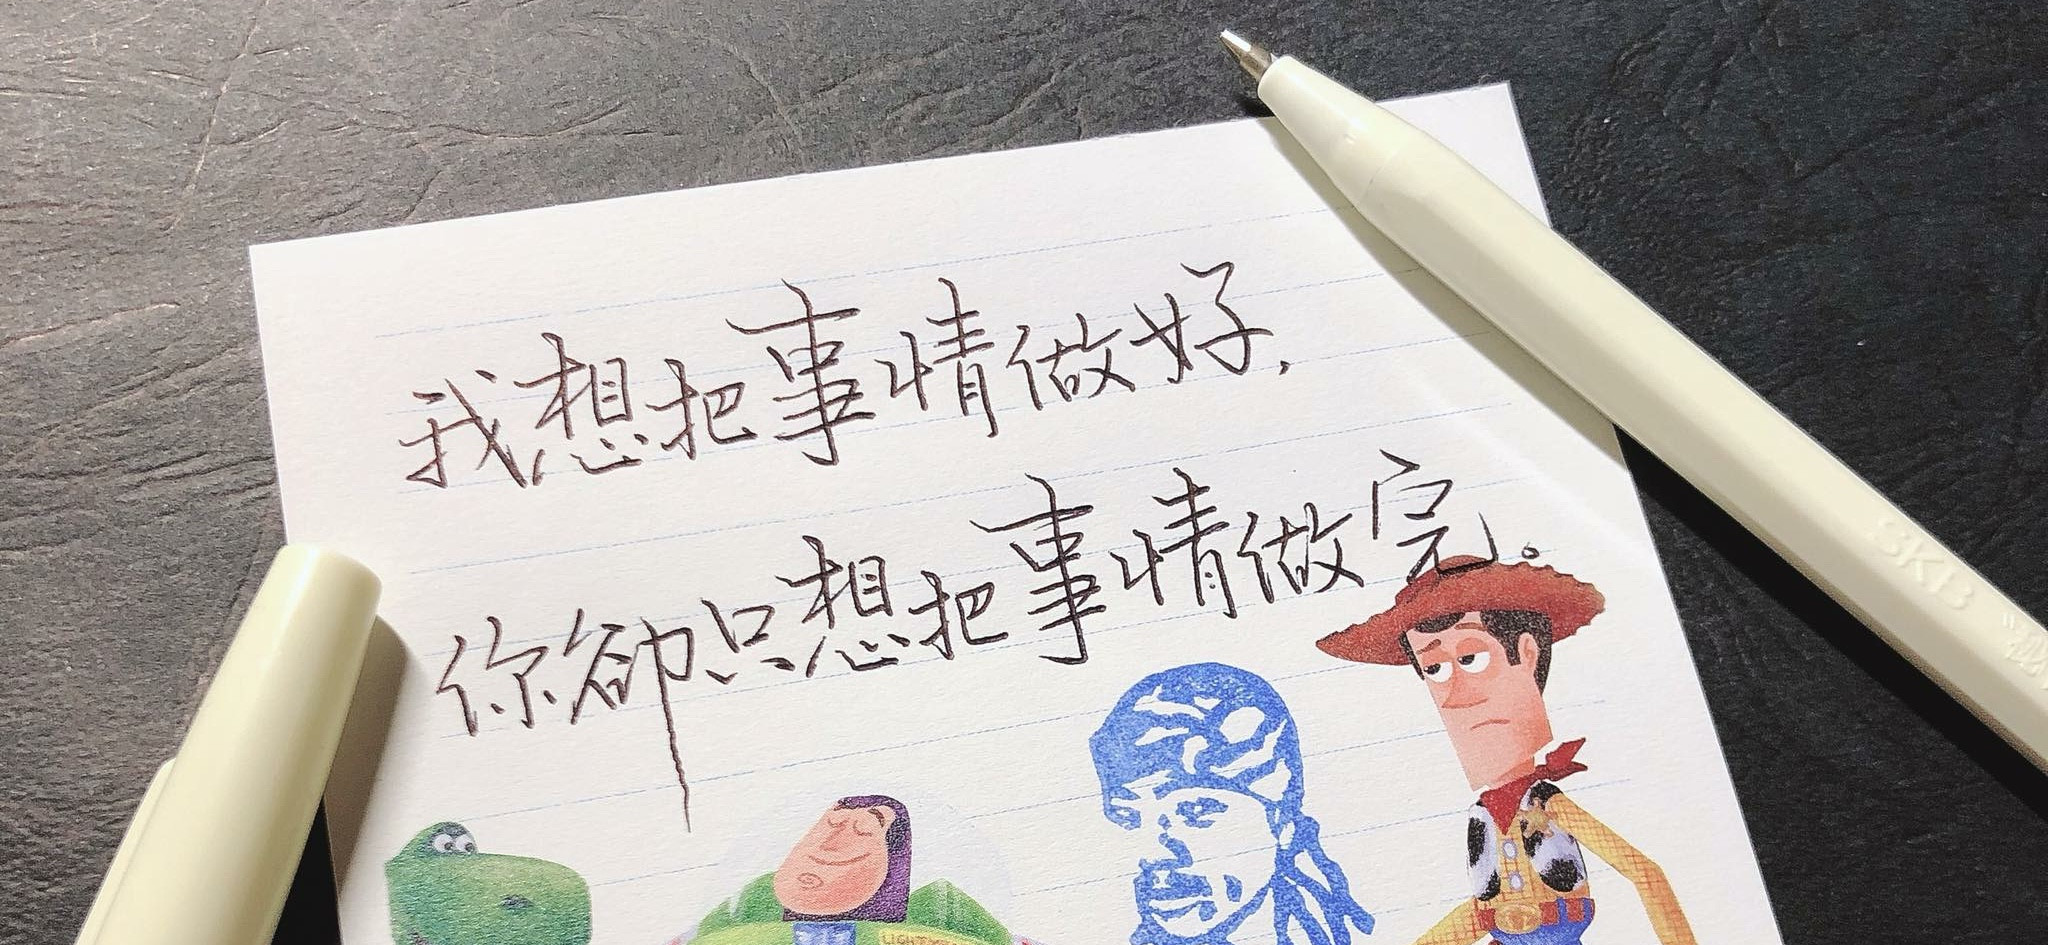 我想把事情做好，
你卻只想把事情做完。
SKB